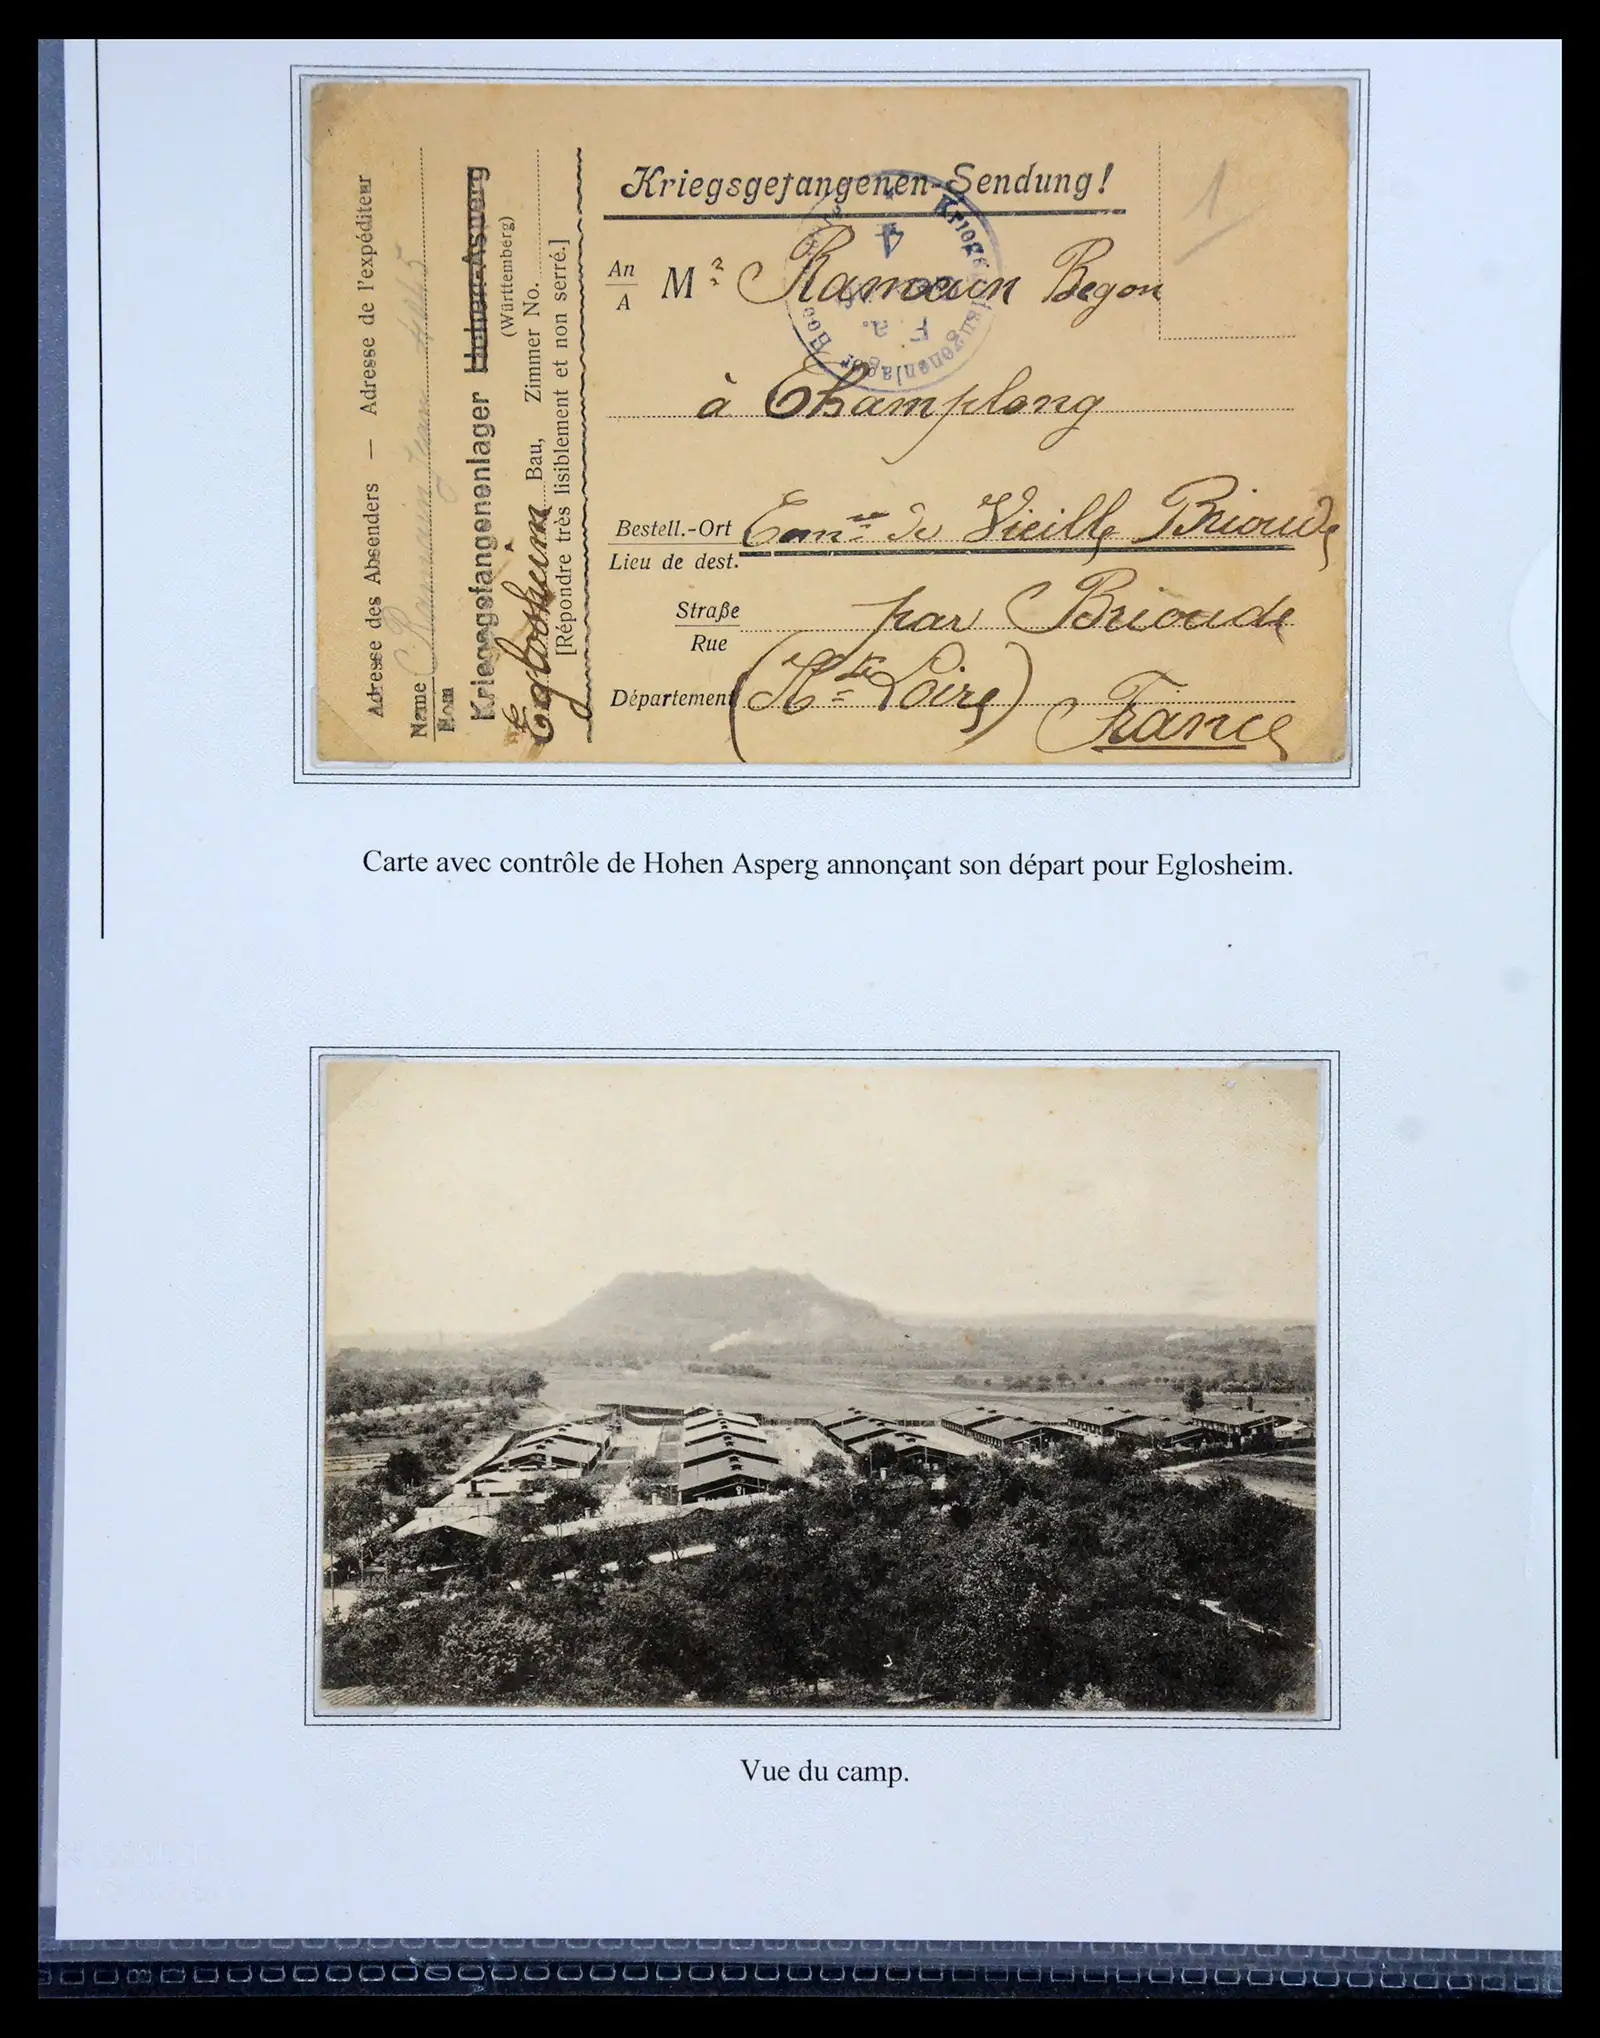 Kriegsgefangenen-Sendung!
1
An
A
Mr Ramain Begon
à Champlong
Bestell.-Ort
Lieu de dest.
Comne de Vieille Brioude
Straße
Rue
par Brioude
Département
(Hte Loire) France
Adresse des Absenders — Adresse de l'expéditeur
Name
Nom
Jean
Kriegsgefangenenlager Hohen-Asperg
(Württemberg)
Eglosheim Bau, Zimmer No.
[Répondre très lisiblement et non serré.]
Kriegsgefangenenlager
4
F. a.
Carte avec contrôle de Hohen Asperg annonçant son départ pour Eglosheim.
Vue du camp.